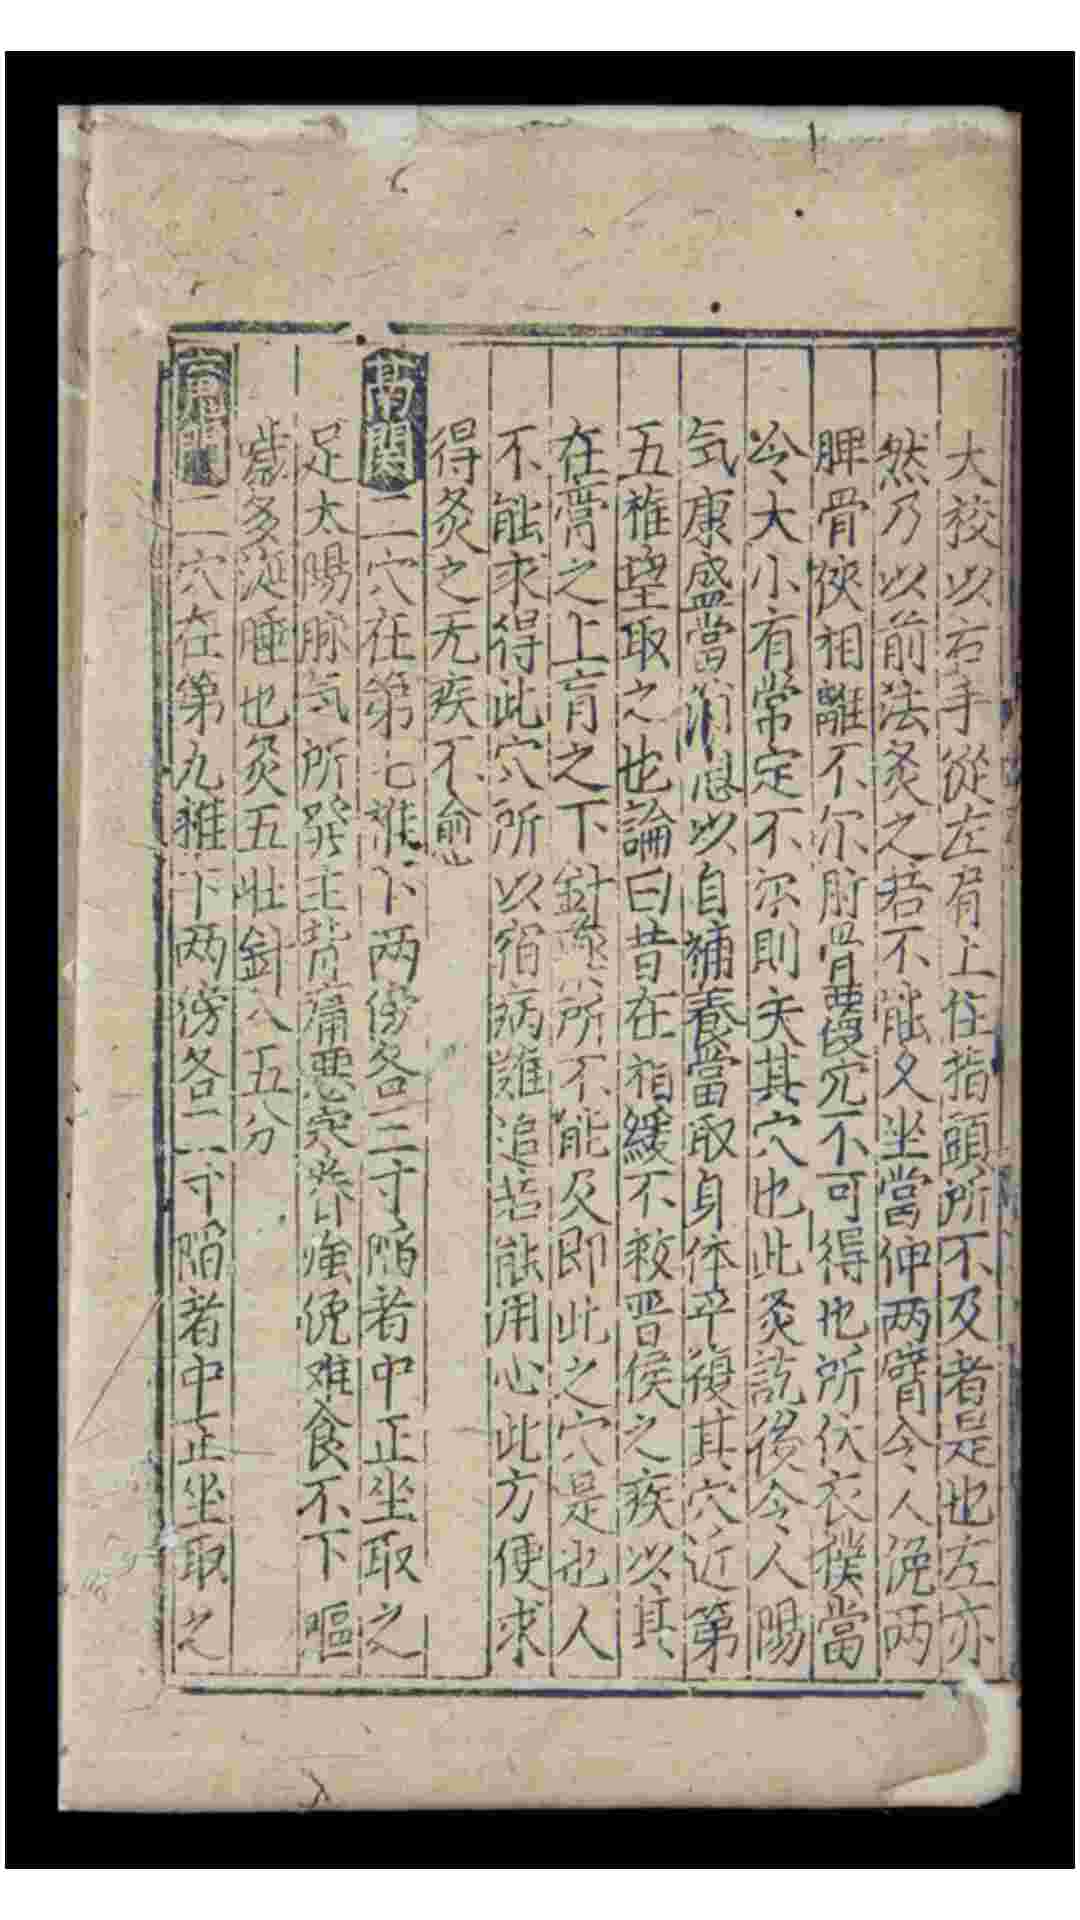 大杼以右手從左肩上住指頭所不及者是也左亦
然乃以前法灸之若不能久坐當伸两臂令人挽两
胛骨使相離不尔胛骨覆穴不可得也所伏衣襆當
令大小有常定不尔則失其穴也此灸訖後令人陽
気康盛當消息以自補養當取身体平復其穴近第
五椎望取之也論曰昔在 緩不救晋侯之疾以其
在膏之上肓之下針 所不能及即此之穴是也人
不能求得此穴所以宿病難追若能用心此方便求
得灸之无疾不愈
膈関二穴在第七椎下两傍各三寸陥者中正坐取之
足太陽脉気所発主背痛悪寒脊強俛难食不下嘔
噦多涎唾也灸五壮針入五分
魂門二穴在第九椎下两傍各三寸陥者中正坐取之